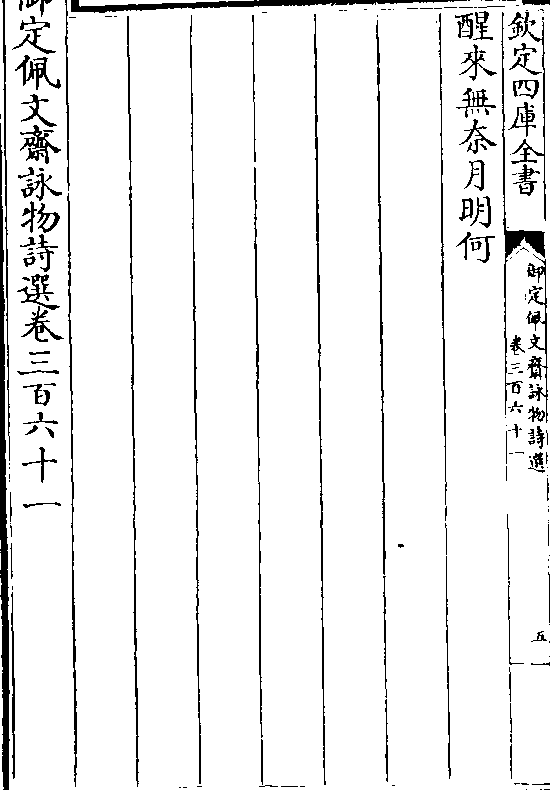 欽定四庫全書
御定佩文齋詠物詩選
卷三百六十一
五
醒來無奈月明何
御定佩文齋詠物詩選卷三百六十一